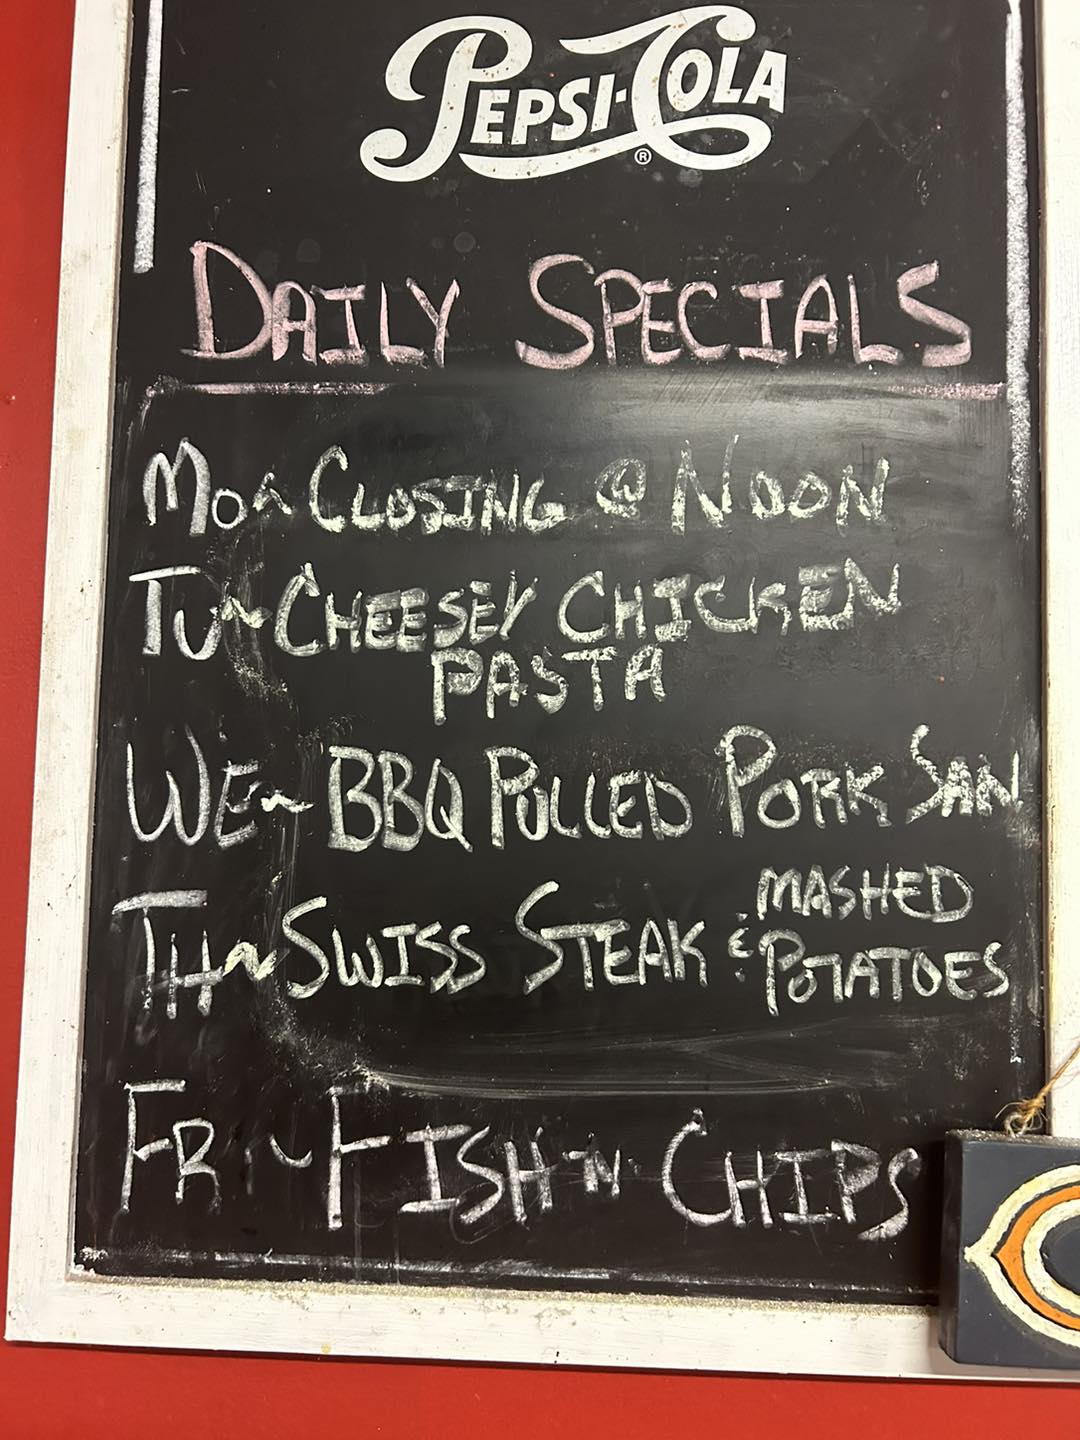 PEPSI-COLA
®
DAILY SPECIALS
Mo~ CLOSING @ NOON
TU~ CHEESEY CHICKEN
PASTA
WE~ BBQ PULLED PORK SAN
TH~ SWISS STEAK & MASHED
POTATOES
FR~ FISH 'N' CHIPS